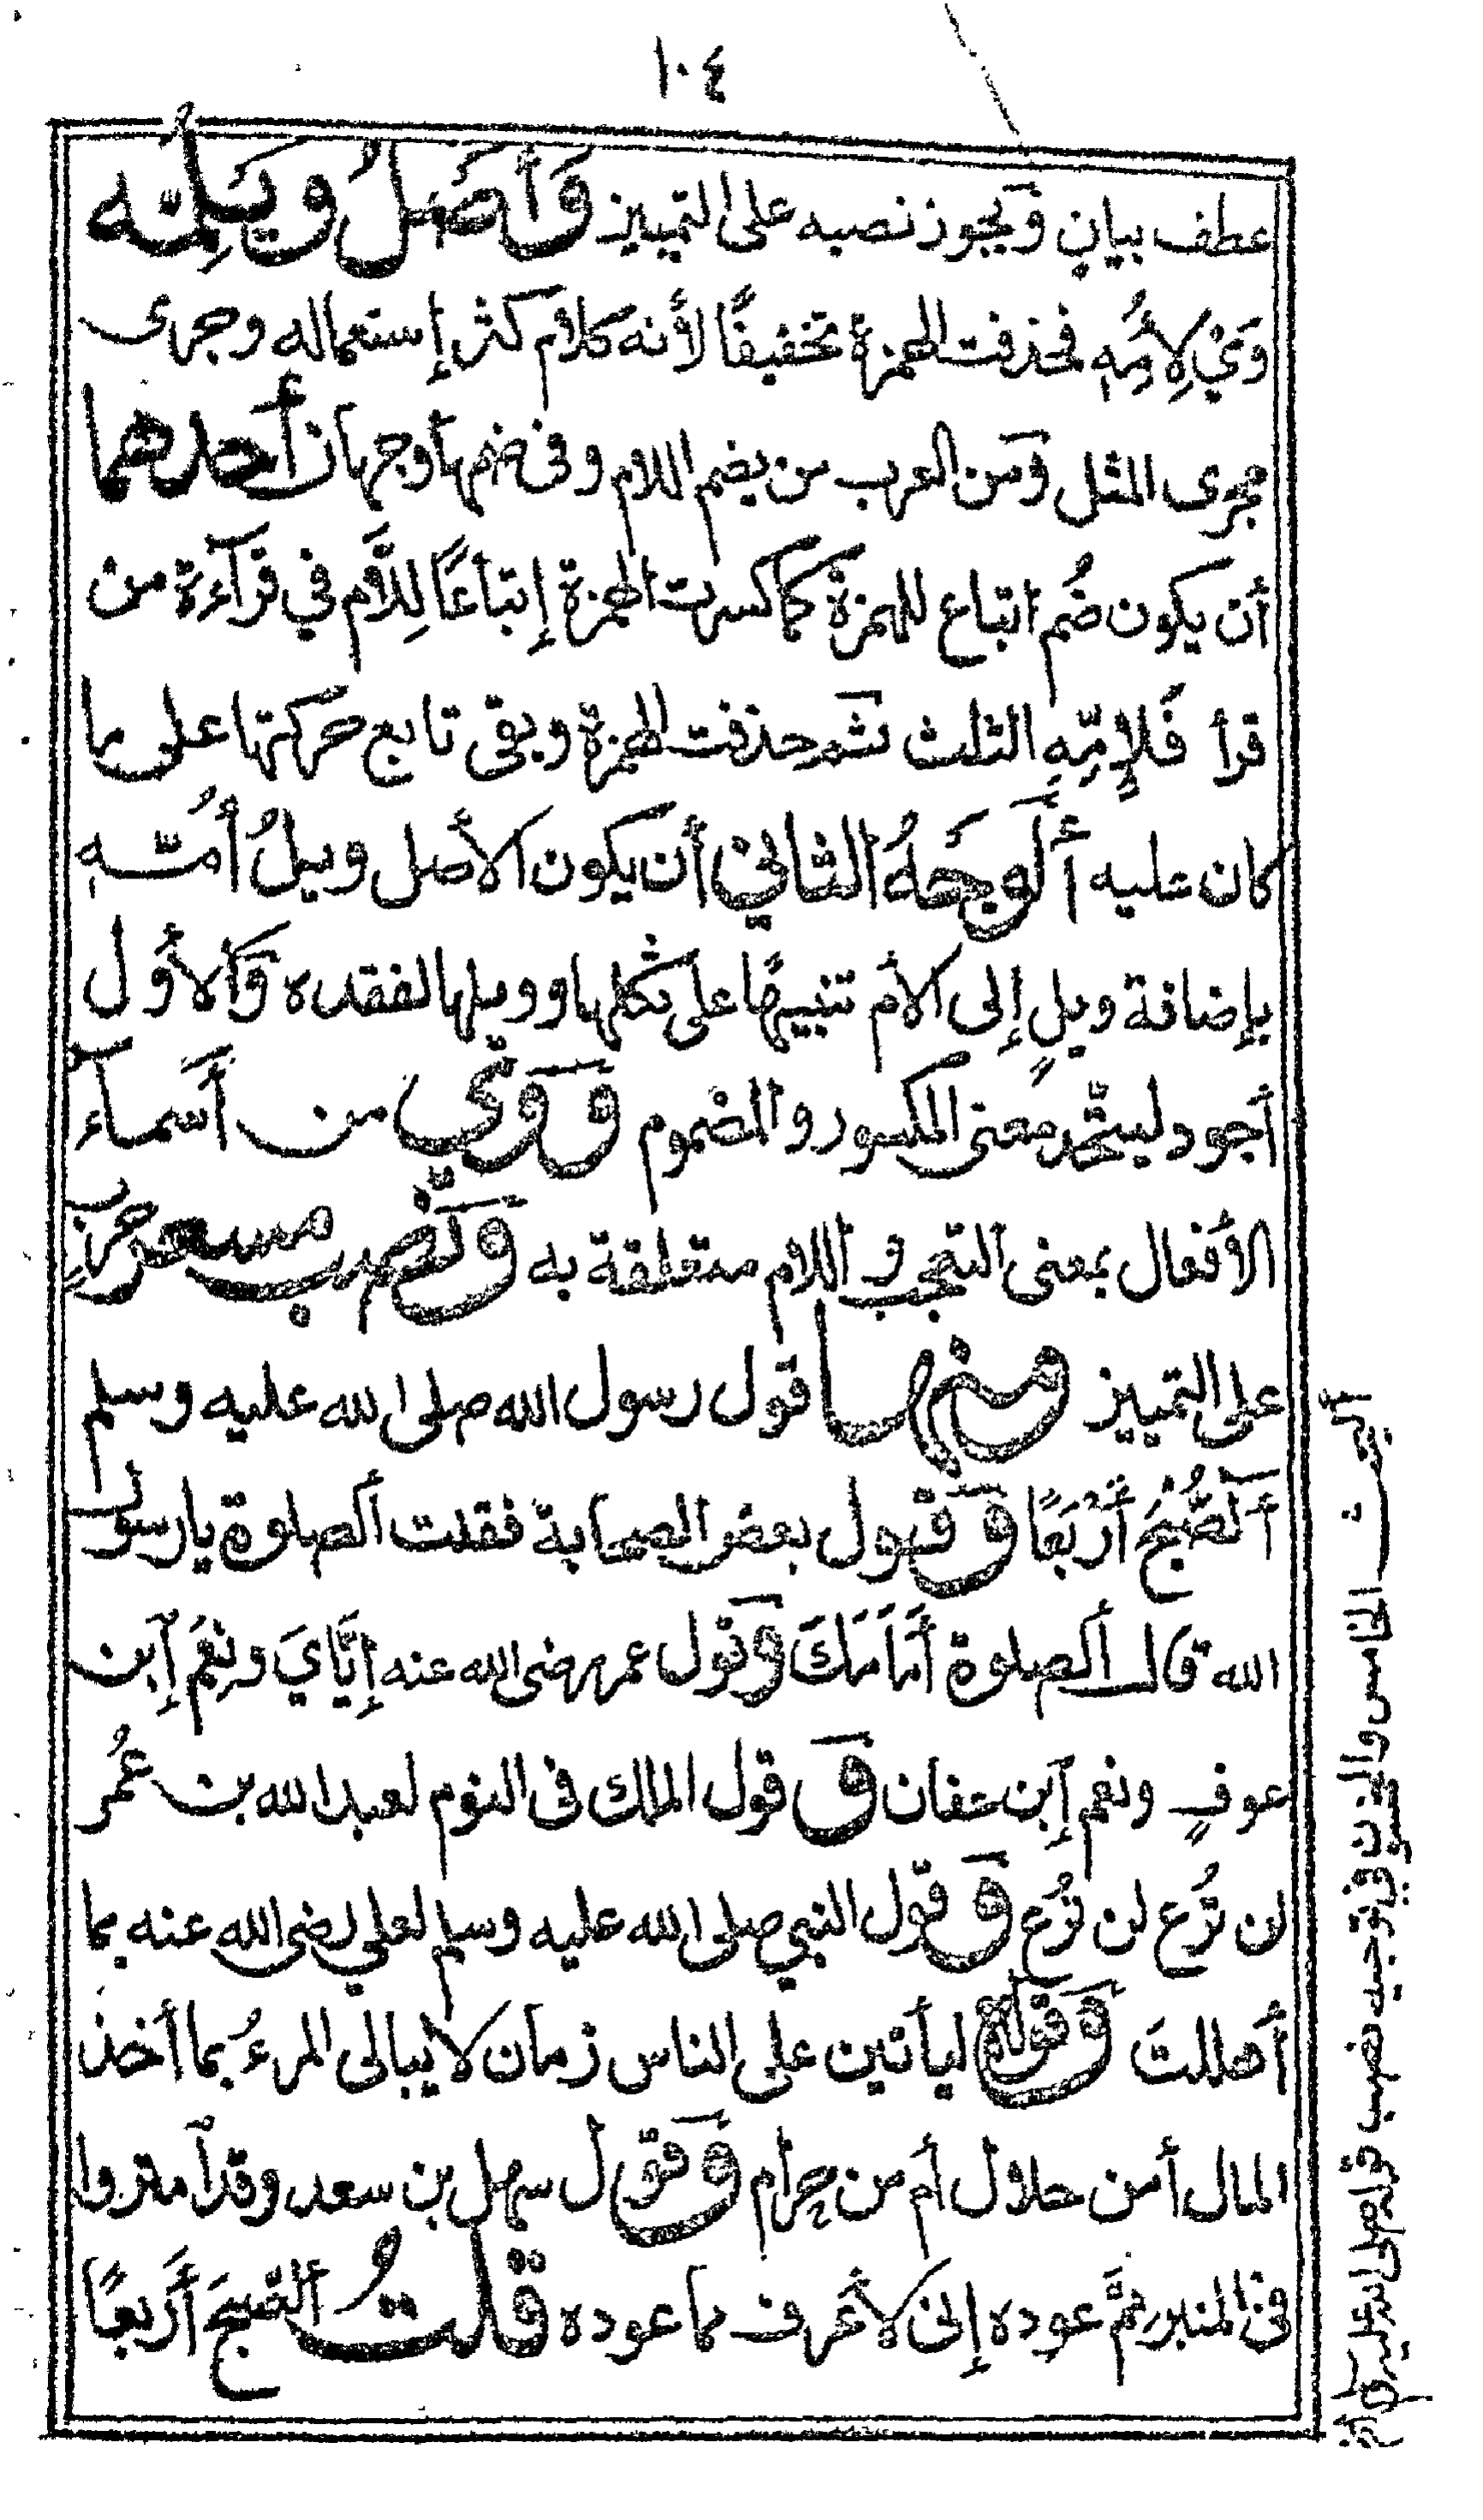 ١٠٤
عطف بيانٍ وَيجوز نصبه على التمييز وَأَصْلُ وَيْلِمِّهِ
وَيْ لِأُمِّهِ فحذفت الهمزة تخفيفًا لأنه كلام كثر إستعماله وجرى
مجرى المثل وَمن العرب من يضم اللام وفى ضمها وجهان أَحدهما
أن يكون ضُم اتباع للهمزة كما كسرت الهمزة إتباعًا لِلَّام في قرآءة من
قرأ فَلِإِمِّهِ الثلث ثم حذفت الهمزة وبقى تابع حركتها على ما
كان عليه أَلْوَجْهُ الثاني أن يكون الأصل ويلُ أُمِّهِ
بإضافة ويلٍ إلى الأم تنبيهًا على ثكلها وويلها لفقده وَالأول
أجود ليتّحد معنى المكسور والمضموم وَوَيْ من أَسمآء
الأفعال بمعنى التعجب واللام متعلقة به وَنصب مسعر حربٍ
على التمييز ومنها قول رسول الله صلى الله عليه وسلم
آلصُّبْحُ أَرْبَعًا وَقول بعض الصحابة فقلت ألصلوة يا رسول
الله قال ألصلوة أَمَامَكَ وَقول عمر رضى الله عنه إِيَّايَ ونِعَم إبن
عوفٍ ونعم إبن عفان وَ قول الملك فى النوم لعبد الله بن عُمر
لن تُرَع لن تُرَع وَقول النبي صلى الله عليه وسلم لعلي رضى الله عنه بما
أهللتَ وَقوله ليأتين على الناس زمان لا يبالى المرءُ بما أخذ
المال أمن حلال أم من حرام وَقول سهل بن سعد وقد امتروا
فى المنبر مِمَّ عوده إنى لأعرف مما عوده قلتُ الصّبحَ أَربعًا
الخامس والخمسون في توجيه نصب